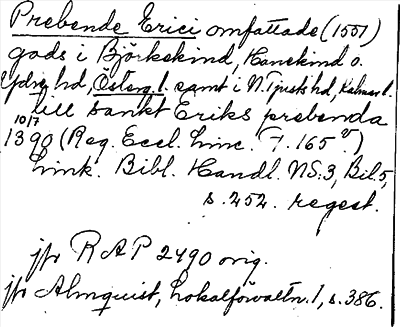 Prebende Erici omfattade (1551)
gods i Björkekind, Hanekind o.
Ydre hd, Österg. l. samt i N. Tjusts hd, Kalmar l.
till sankt Eriks prebenda
10/7
1390 (Reg. Eccl. Linc. F. 165 v.)
Link. Bibl. Handl. NS:3, Bil 5,
s. 252. regest.
jfr RAP 2490 orig.
jfr Almquist, Lokalförvaltn. 1, s. 386.